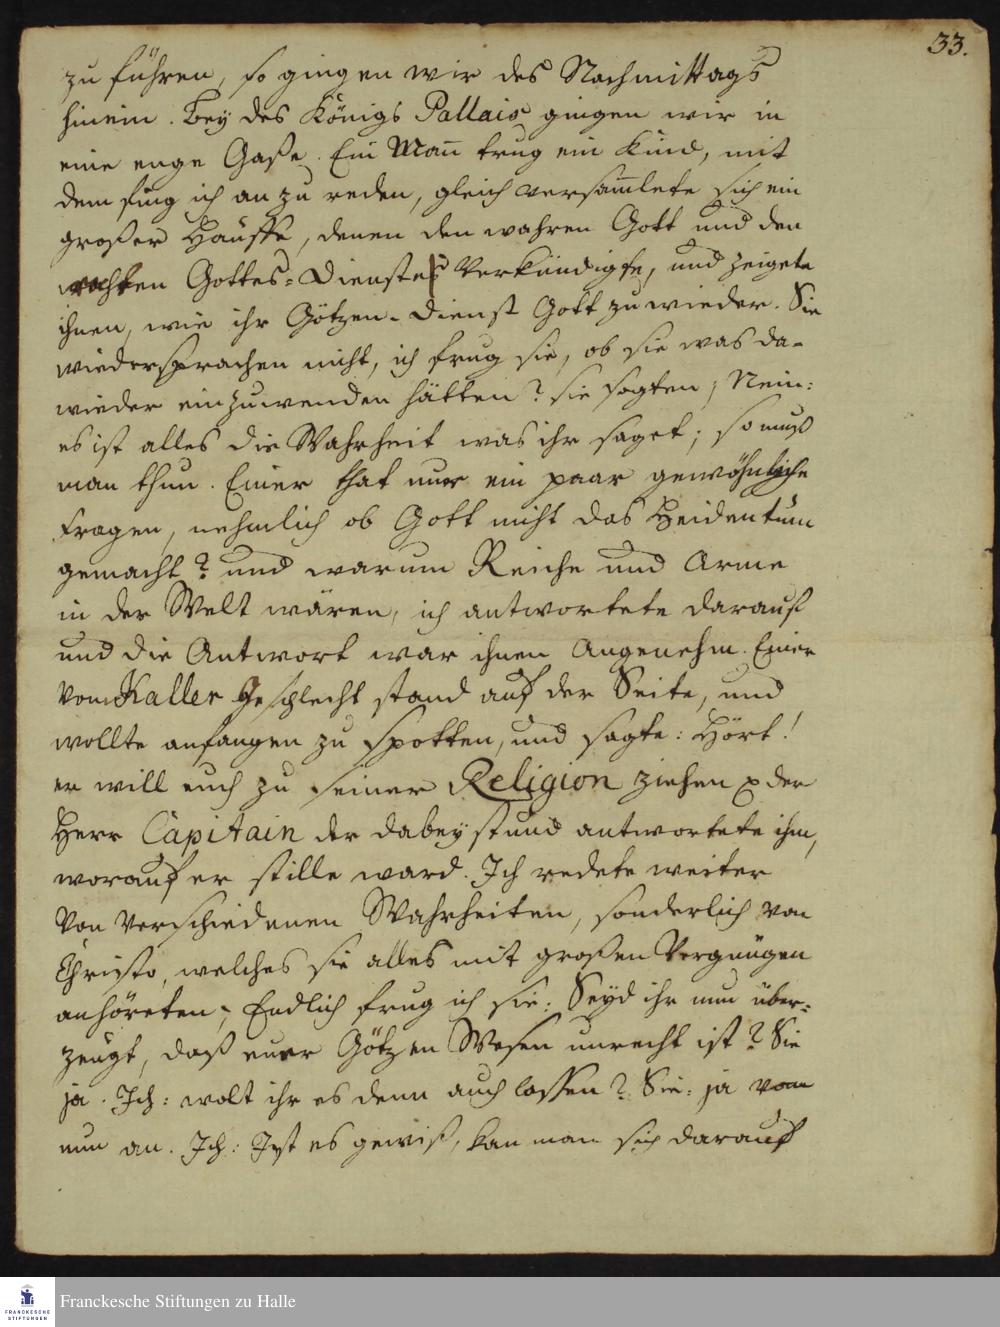 33.
zu führen, so gingen wir des Nachmittags
hinein. Bey des Königs Pallais gingen wir in
eine enge Gaße. Ein Mañ trug ein Kind, mit
dem fing ich an zu reden, gleich versam̃lete sich ein
großer Hauffe, denen den wahren Gott und den
rechten Gottes-Dienst verkündigte, und zeigete
ihnen, wie ihr Götzen-Dienst Gott zuwieder. Sie
wiedersprachen nicht, ich frug sie, ob sie was da-
wieder einzuwenden hätten? sie sagten; Nein:
es ist alles die Wahrheit was ihr saget; so muß
man thun. Einer that nur ein paar gewöhnliche
Fragen, nehmlich ob Gott nicht das Heidentum
gemacht? und warum Reiche und Arme
in der Welt wären, ich antwortete darauf
und die Antwort war ihnen Angenehm. Einer
vom Kaller Geschlecht stand auf der Seite, und
wollte anfangen zu spotten, und sagte: Hört!
er will euch zu seiner Religion ziehen der
Herr Capitain der dabey stund antwortete ihm,
worauf er stille ward. Ich redete weiter
von verschiedenen Wahrheiten, sonderlich von
Christo, welches sie alles mit großen Vergnügen
anhöreten; Endlich frug ich sie: Seyd ihr nun über-
zeugt, daß euer Götzen Wesen unrecht ist? Sie
ja. Ich: wolt ihr es denn auch lassen? Sie: ja von
nun an. Ich: Ist es gewiß, kan man sich darauf
Franckesche Stiftungen zu Halle
FRANCKESCHE
STIFTUNGEN